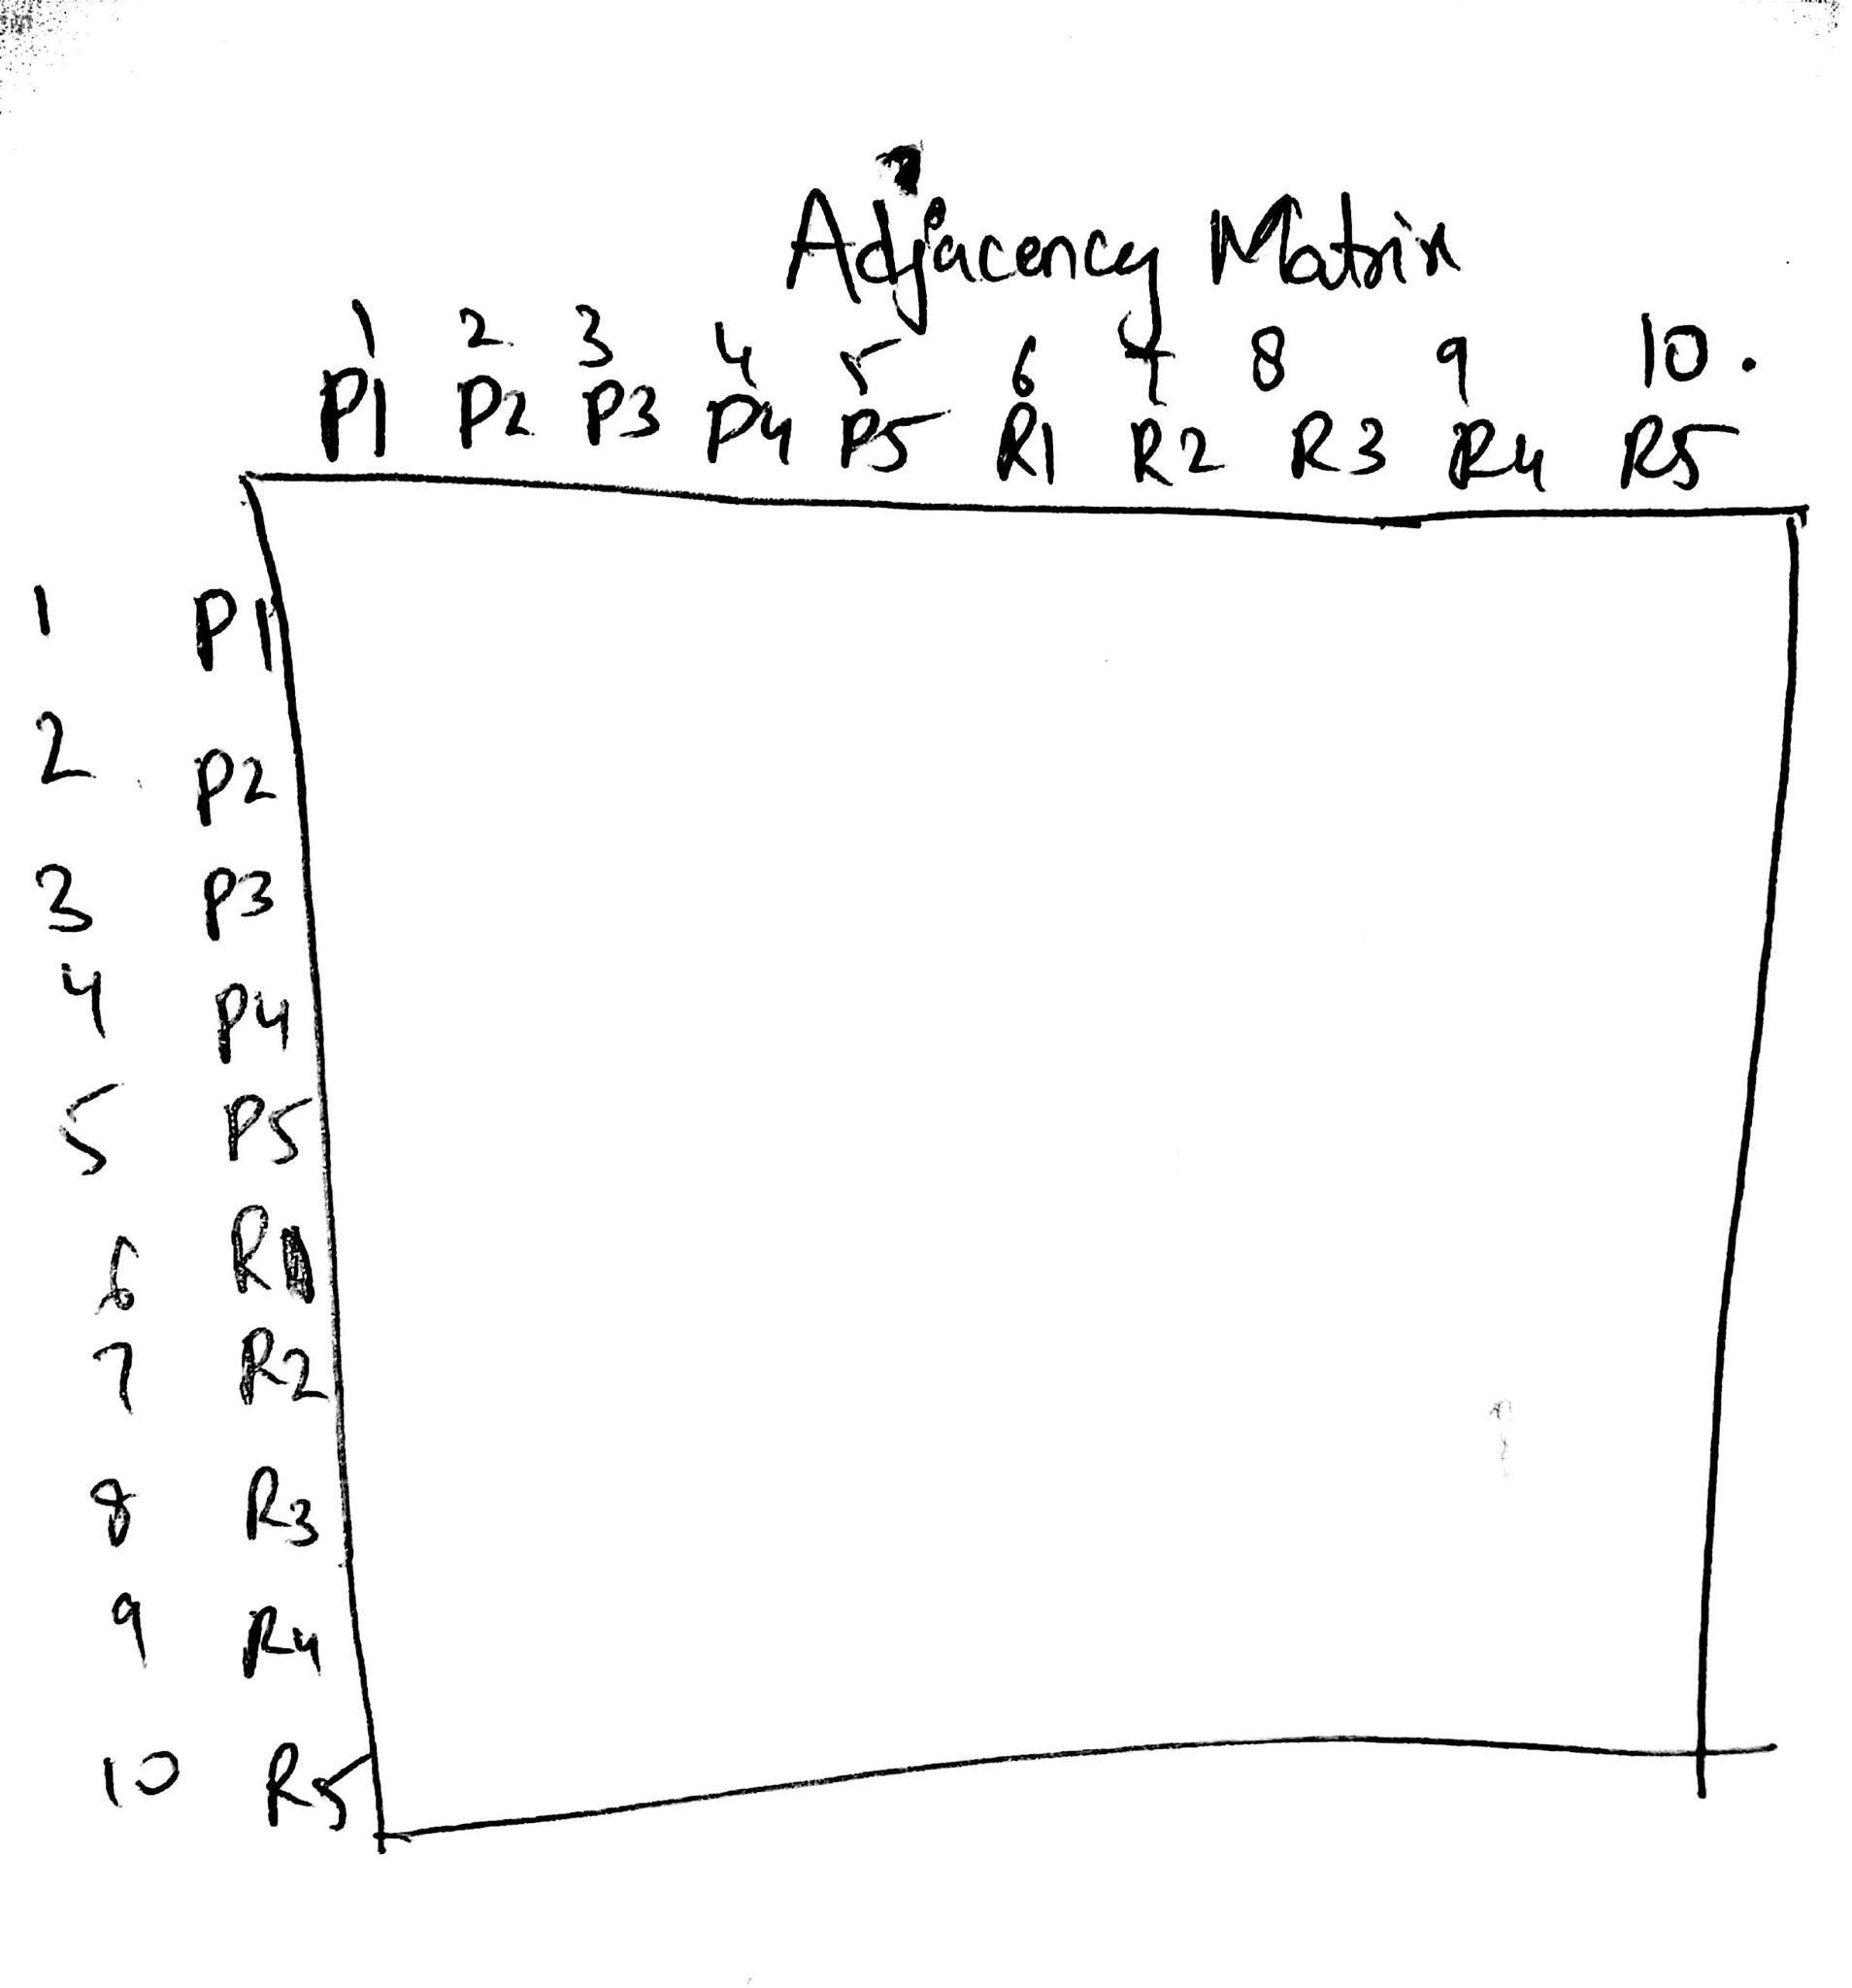 Adjacency Matrix
1 2 3 4 5 6 7 8 9 10.
P1 P2 P3 P4 P5 R1 R2 R3 R4 R5
1 P1
2 P2
3 P3
4 P4
5 P5
6 R1
7 R2
8 R3
9 R4
10 R5